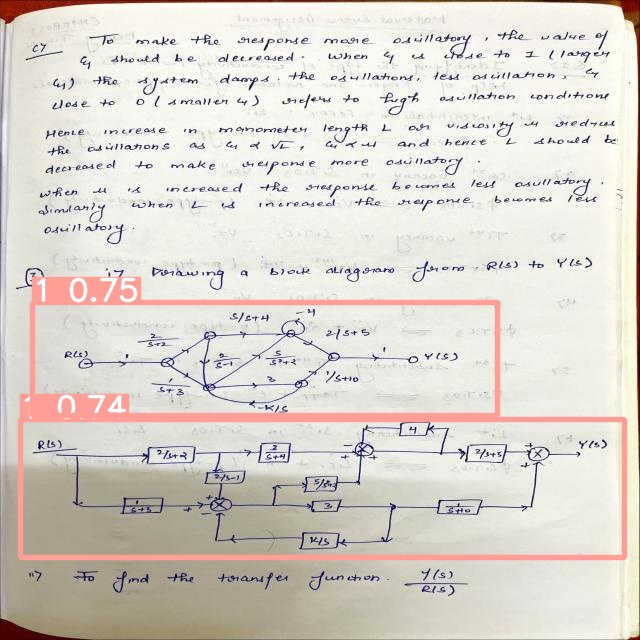 c7 To make the response more oscillatory, the value of
ζ should be decreased. When ζ is close to 1 (larger
ζ) the system damps. the oscillations, less oscillation, ζ
close to 0 (smaller ζ) refers to high oscillation conditions
Hence increase in manometer length L or viscosity μ reduces
the oscillations as ζ α √L, ζ α μ and hence L should be
decreased to make response more oscillatory.
When μ is increased the response becomes less oscillatory.
Similarly when L is increased the response becomes less
oscillatory.
7 i7 Drawing a block diagram from R(s) to Y(s)
1 0.75
5/s+4 -4 2/s+5
2/s+2
R(s) 1 2/s-1 5/s²+2 1 Y(s)
1/s+3 3 1/s+10
-K/s
1 0.74
R(s) 4 Y(s)
2/s+2 2/s+4 - + 2/s+5 +
2/s-1
1/s+3 + + 3 1/s+10 +
K/s
ii7 To find the transfer function. Y(s)/R(s)